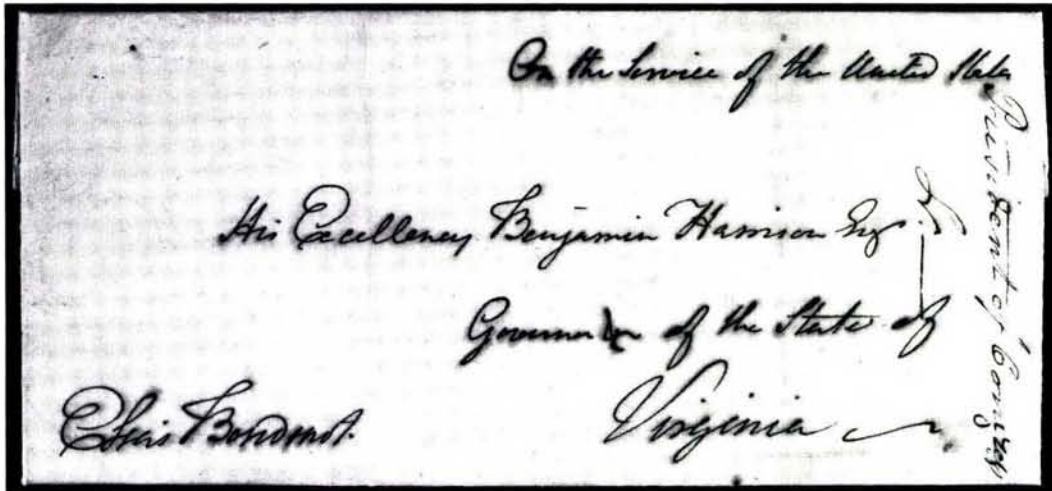 On the Service of the United States
His Excellency Benjamin Harrison Esqr
Governor of the State of
Virginia
Elias Boudinot.
President of Congress